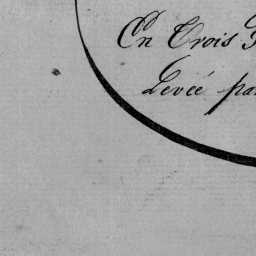 En Trois
Levéé par